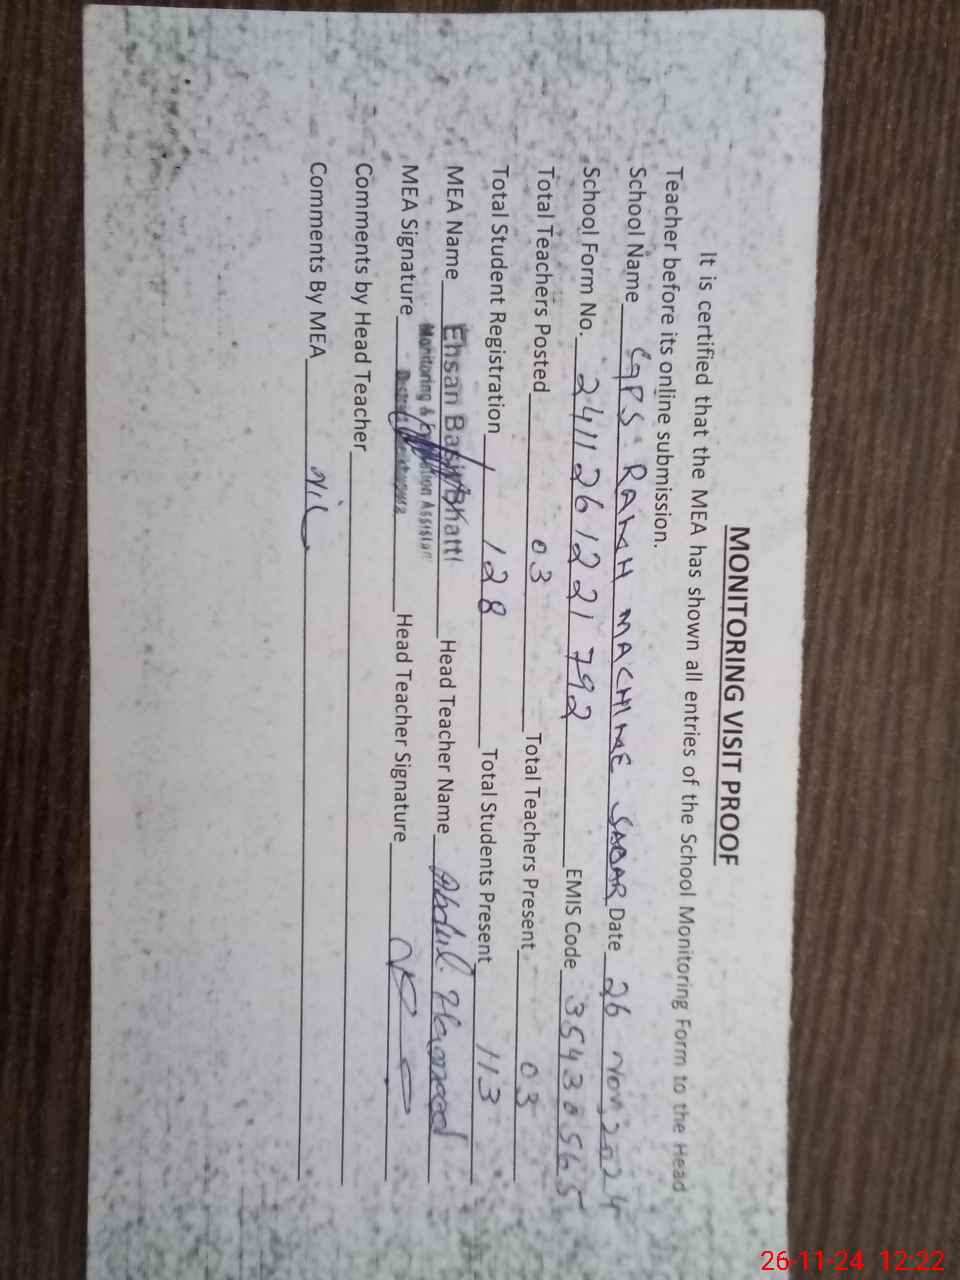 MONITORING VISIT PROOF
It is certified that the MEA has shown all entries of the School Monitoring Form to the Head
Teacher before its online submission.
School Name GPS RANAH MACHINE SABAR Date 26 Nov, 2024
School Form No. 241126 1221 792 EMIS Code 35430565
Total Teachers Posted 03 Total Teachers Present 03
Total Student Registration 128 Total Students Present 113
MEA Name Ehsan Basir Bhatti Head Teacher Name Abdul Hameed
Monitoring & Evaluation Assistan
MEA Signature Head Teacher Signature
Comments by Head Teacher
Comments By MEA Nil
26-11-24 12:22